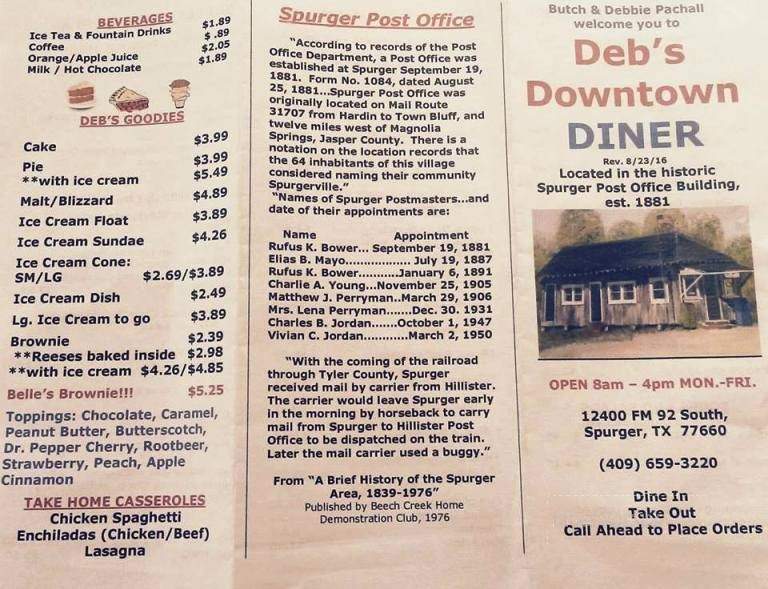 BEVERAGES
Ice Tea & Fountain Drinks $1.89
Coffee $ .89
Orange/Apple Juice $2.05
Milk / Hot Chocolate $1.89
DEB'S GOODIES
Cake $3.99
Pie $3.99
**with ice cream $5.49
Malt/Blizzard $4.89
Ice Cream Float $3.89
Ice Cream Sundae $4.26
Ice Cream Cone:
SM/LG $2.69/$3.89
Ice Cream Dish $2.49
Lg. Ice Cream to go $3.89
Brownie $2.39
**Reeses baked inside $2.98
**with ice cream $4.26/$4.85
Belle's Brownie!!! $5.25
Toppings: Chocolate, Caramel,
Peanut Butter, Butterscotch,
Dr. Pepper Cherry, Rootbeer,
Strawberry, Peach, Apple
Cinnamon
TAKE HOME CASSEROLES
Chicken Spaghetti
Enchiladas (Chicken/Beef)
Lasagna
Spurger Post Office
"According to records of the Post
Office Department, a Post Office was
established at Spurger September 19,
1881. Form No. 1084, dated August
25, 1881...Spurger Post Office was
originally located on Mail Route
31707 from Hardin to Town Bluff, and
twelve miles west of Magnolia
Springs, Jasper County. There is a
notation on the location records that
the 64 inhabitants of this village
considered naming their community
Spurgerville."
"Names of Spurger Postmasters...and
date of their appointments are:
Name Appointment
Rufus K. Bower... September 19, 1881
Elias B. Mayo............. July 19, 1887
Rufus K. Bower.......January 6, 1891
Charlie A. Young...November 25, 1905
Matthew J. Perryman..March 29, 1906
Mrs. Lena Perryman.......Dec. 30, 1931
Charles B. Jordan.......October 1, 1947
Vivian C. Jordan............March 2, 1950
"With the coming of the railroad
through Tyler County, Spurger
received mail by carrier from Hillister.
The carrier would leave Spurger early
in the morning by horseback to carry
mail from Spurger to Hillister Post
Office to be dispatched on the train.
Later the mail carrier used a buggy."
From "A Brief History of the Spurger
Area, 1839-1976"
Published by Beech Creek Home
Demonstration Club, 1976
Butch & Debbie Pachall
welcome you to
Deb's
Downtown
DINER
Rev. 8/23/16
Located in the historic
Spurger Post Office Building,
est. 1881
OPEN 8am – 4pm MON.-FRI.
12400 FM 92 South,
Spurger, TX 77660
(409) 659-3220
Dine In
Take Out
Call Ahead to Place Orders